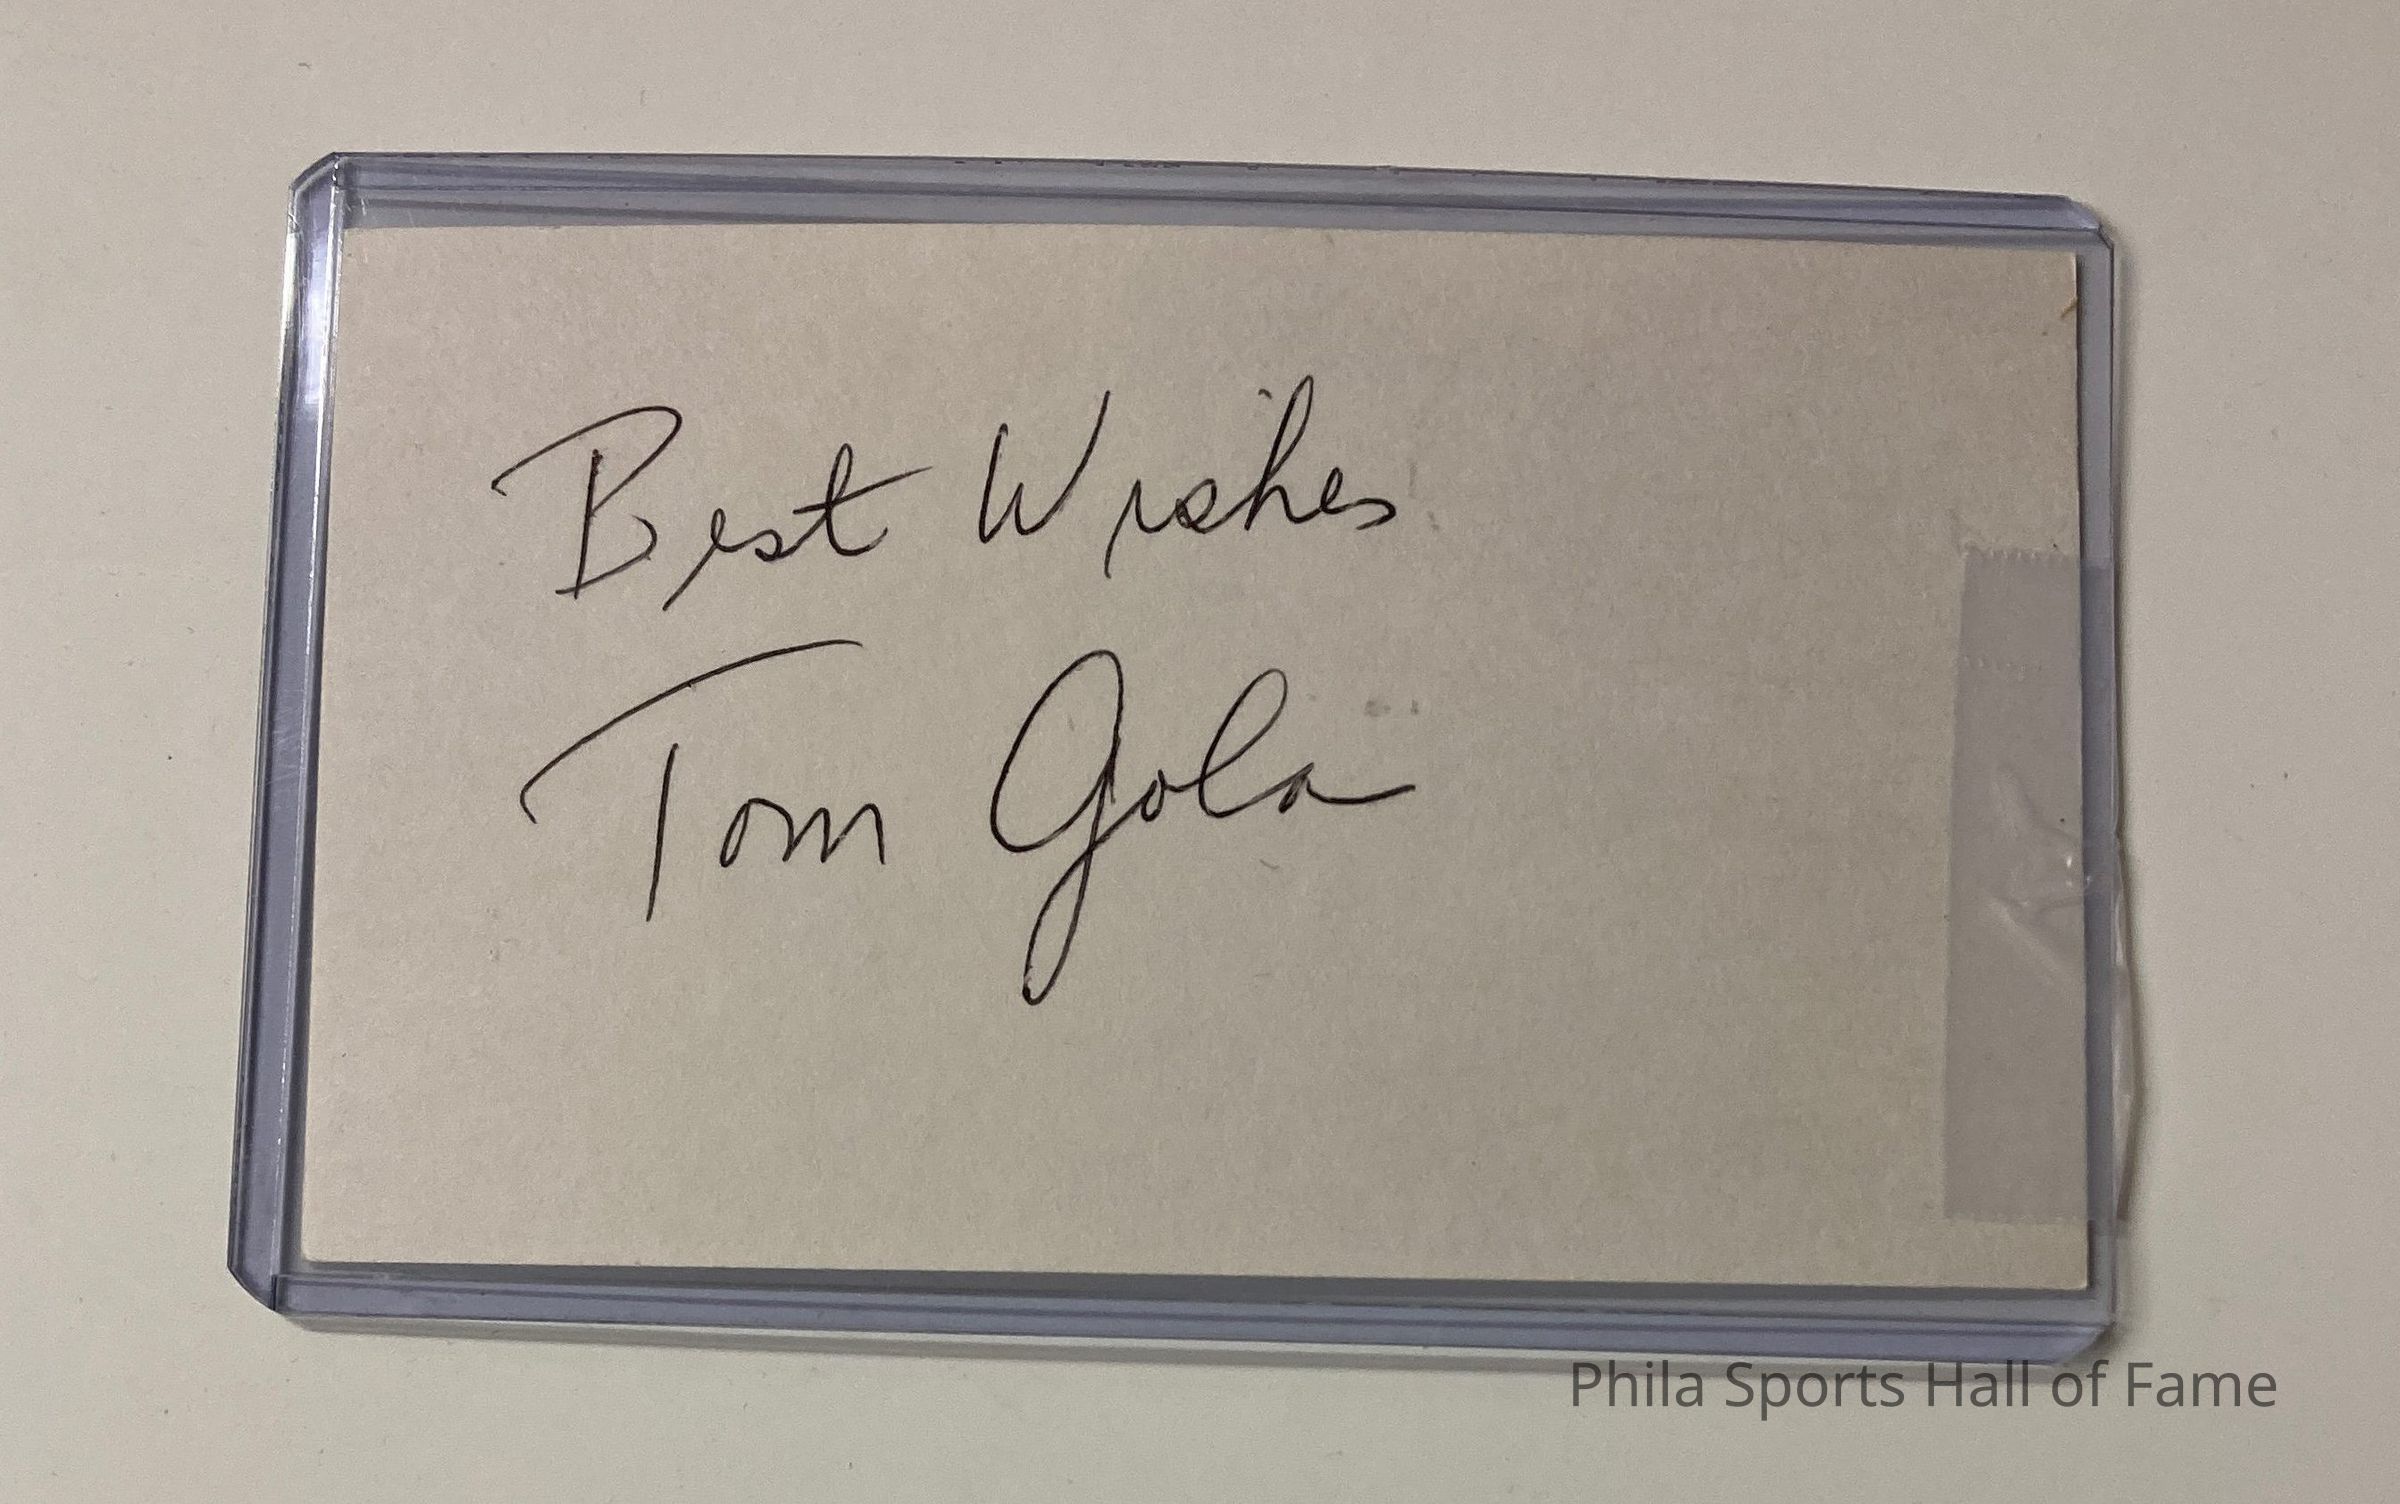 Best Wishes
Tom Gola
Phila Sports Hall of Fame